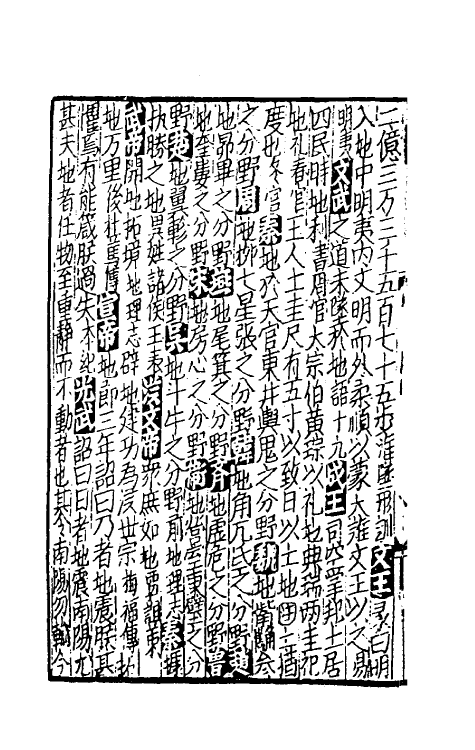 二億三万三千五百七十五步淮墬形訓文王彖曰明
入地中明夷内文明而外柔順以蒙大難文王以之易
明夷文武之道未墜於地語十九成王司空掌邦土居
四民時地利書周官大宗伯黄琮以礼地典瑞兩圭祀
地礼春官玉人土圭尺有五寸以致日以土地
度地冬官秦地於天官東井輿鬼之分野魏地觜觿參
之分野周地柳七星張之分野韓地角亢氐之分野趙
地昴畢之分野燕地尾箕之分野齊地虛危之分野魯
地奎婁之分野宋地房心之分野衞地營室東壁之分
野楚地翼軫之分野吳地斗牛之分野前地理志秦據
勝之地異姓諸侯王表漢文帝衆庶如地賈誼策
武帝開地拓境地理志辟地建功為漢世宗梅福傳拓
地万里後杜篤傳宣帝地節三年詔曰乃者地震朕甚
懼焉有能箴朕過失本紀光武詔曰日者地震南陽尤
甚夫地者任物至重靜而不動者也其令南陽勿輸今